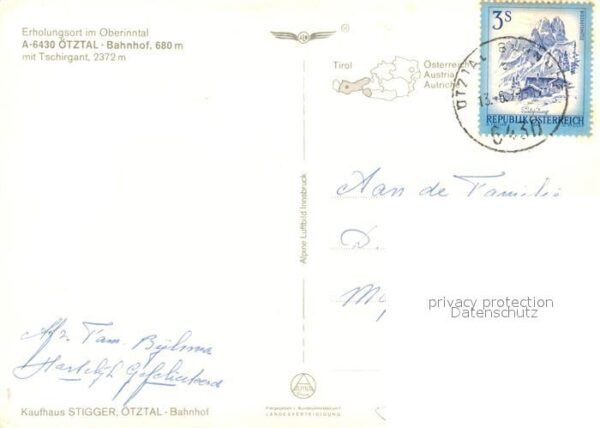 Erholungsort im Oberinntal
A-6430 ÖTZTAL - Bahnhof, 680 m
mit Tschirgant, 2372 m
Tirol
Österreich
Austria
Autriche
3S
REPUBLIK ÖSTERREICH
ÖTZTAL
6430
Alpine Luftbild Innsbruck
Aan de Familie
D.
privacy protection
Datenschutz
Afz. Fam. Bijlsma
Hartelijk Gefeliciteerd
Kaufhaus STIGGER, ÖTZTAL - Bahnhof
LANDESVERTEIDIGUNG